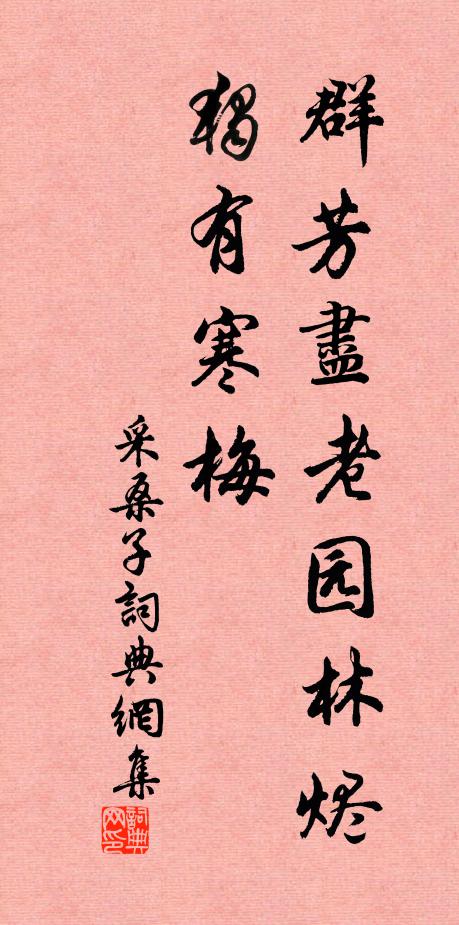 群芳盡老园林烬
獨有寒梅
采桑子詞典網集
詞典网印